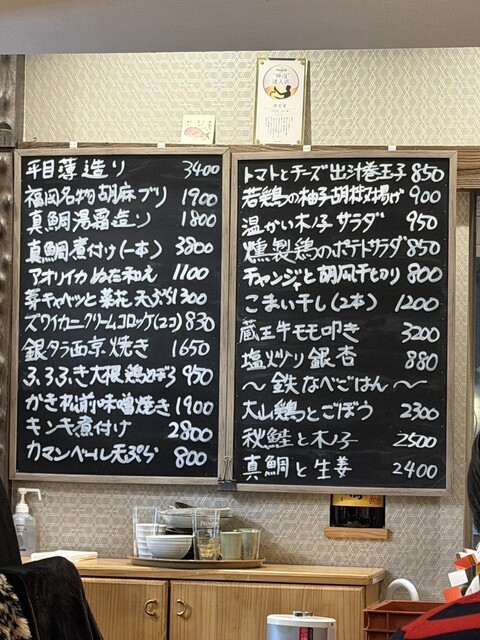 平目薄造り 3400
福岡名物胡麻ブリ 1900
真鯛湯霜造り 1800
真鯛煮付け(一本) 3800
アオリイカぬた和え 1100
芽キャベツと菜花天ぷら 1300
ズワイカニクリームコロッケ(2コ) 830
銀タラ西京焼き 1650
ふろふき大根鶏そぼろ 950
かき松前味噌焼き 1900
キンキ煮付け 2800
カマンベール天ぷら 800
トマトとチーズ出汁巻玉子 850
若鶏の柚子胡椒揚げ 900
温かい木ノ子サラダ 950
燻製鶏のポテトサラダ 850
チャンジャと胡瓜千切り 800
こまい干し(2本) 1200
蔵王牛モモ叩き 3200
塩炒り銀杏 880
〜鉄なべごはん〜
大山鶏とごぼう 2300
秋鮭と木ノ子 2500
真鯛と生姜 2400